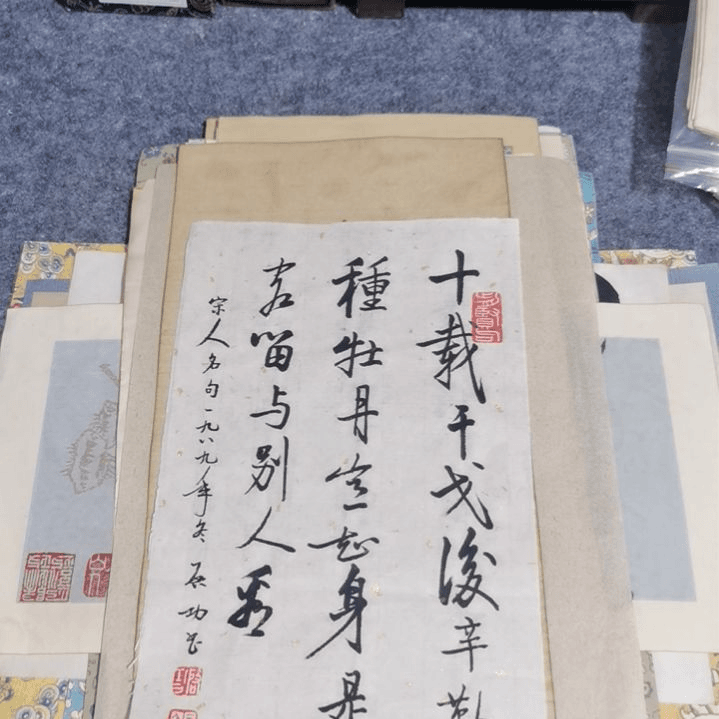 十載干戈後辛勤
種牡丹各起身是
客留与别人看
宋人名句一九八九年冬启功书